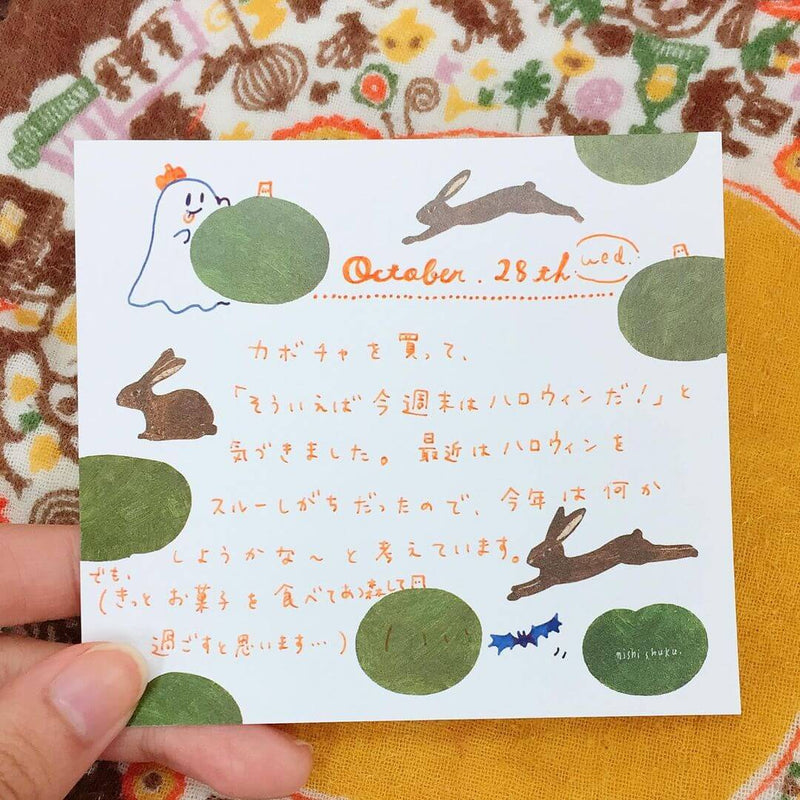 October. 28th wed.
カボチャを買って、
「そういえば今週末はハロウィンだ！」と
気づきました。最近はハロウィンを
スルーしがちだったので、今年は何か
しようかな〜と考えています。
でも、
(きっとお菓子を食べてあつ森して
過ごすと思います…)
nishi shuku.